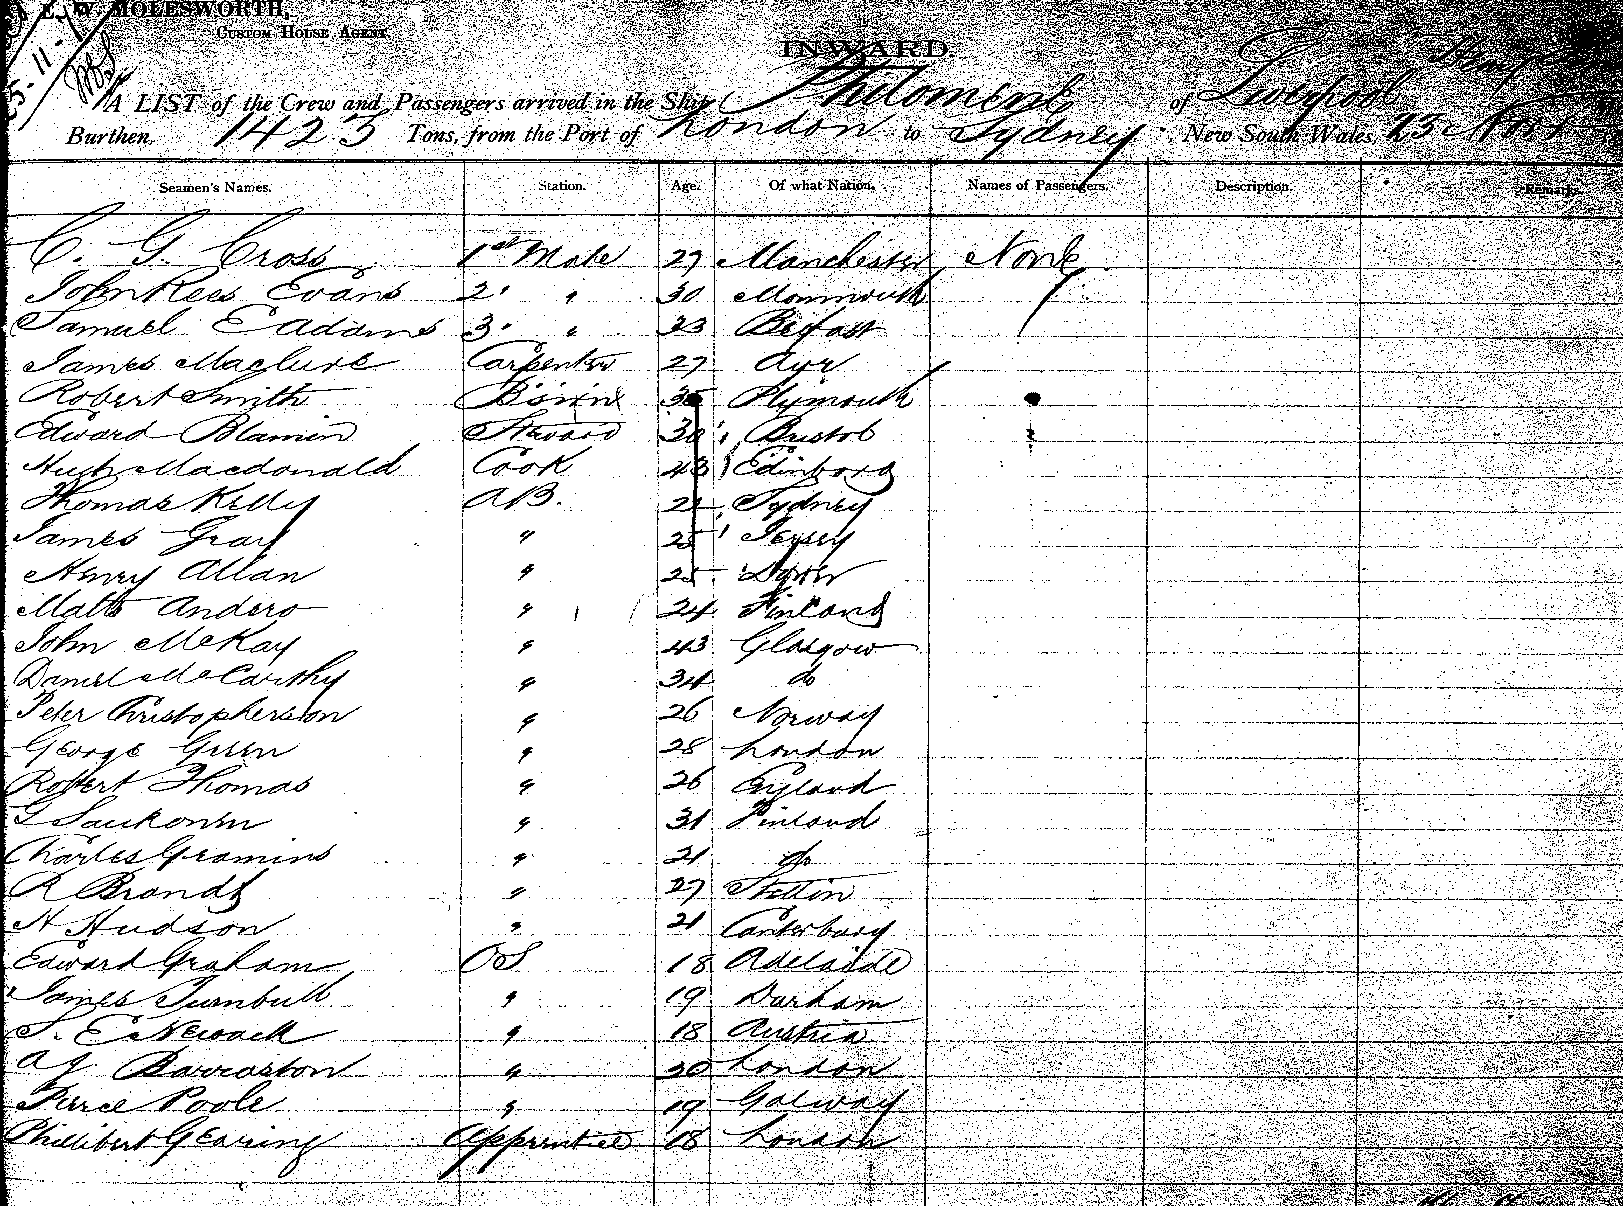 E. W. MOLESWORTH,
CUSTOM HOUSE AGENT
INWARD
A LIST of the Crew and Passengers arrived in the Ship Philomene of Liverpool
Burthen, 1423 Tons, from the Port of London to Sydney New South Wales, 23 Novr
Seamen's Names. Station. Age. Of what Nation. Names of Passengers. Description. Remarks.
C. G. Cross 1st Mate 27 Manchester None
John Rees Evans 2. " 30 Monmouth
Samuel E Adams 3. " 23 Belfast
James Maclure Carpenter 27 Ayr
Robert Smith Bosun 35 Plymouth
Edward Blamin Steward 30 Bristol
Hugh Macdonald Cook 43 Edinboro
Thomas Kelly AB. Sydney
James Gray " 25 Jersey
Henry Allan " 25
Matts Andero " 24 Finland
John McKay " 43 Glasgow
Daniel McCarthy " 34 do
Peter Christopherson " 26 Norway
George Green " 28 London
Robert Thomas " 26 England
Saukonen " 31 Finland
Charles Gramins " 21 do
R Brandt " 27 Stettin
H Hudson " 21 Canterbury
Edward Graham OS 18 Adelaide
James Turnbull " 19 Durham
S. E Newack " 18 Austria
A J Barraston " 20 London
Pierce Poole " 19 Galway
Phillibert Gearing Apprentice 18 London